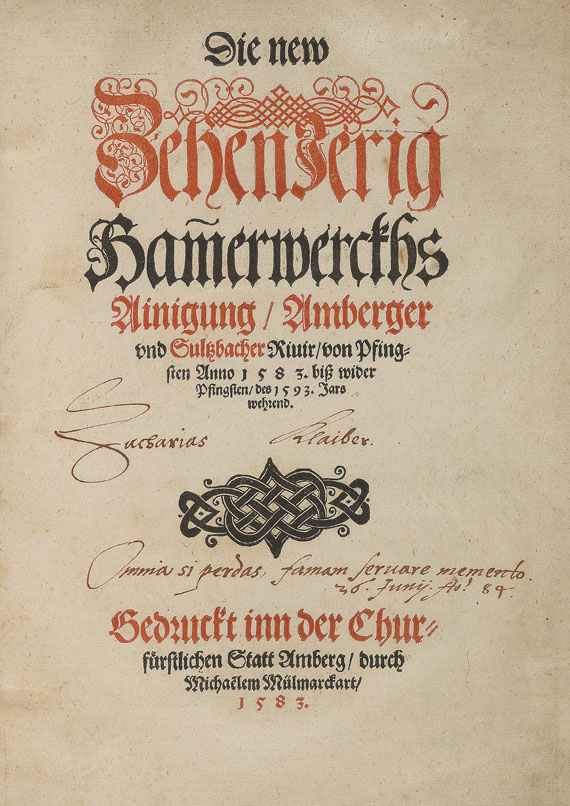 Die new
ZehenJerig
Ham̄erwerckhs
Ainigung / Amberger
vnd Sultzbacher Riuir/von Pfing-
sten Anno 1583. biß wider
Pfingsten/des 1593. Jars
wehrend.
Zacharias Klaiber.
Omnia si perdas, famam seruare memento.
26. Junij. Ao! 84.
Gedruckt inn der Chur-
fürstlichen Statt Amberg/ durch
Michaëlem Mülmarckart/
1583.